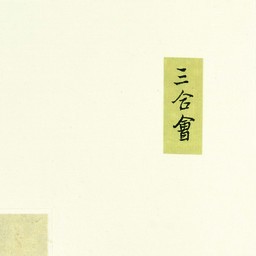 三合會